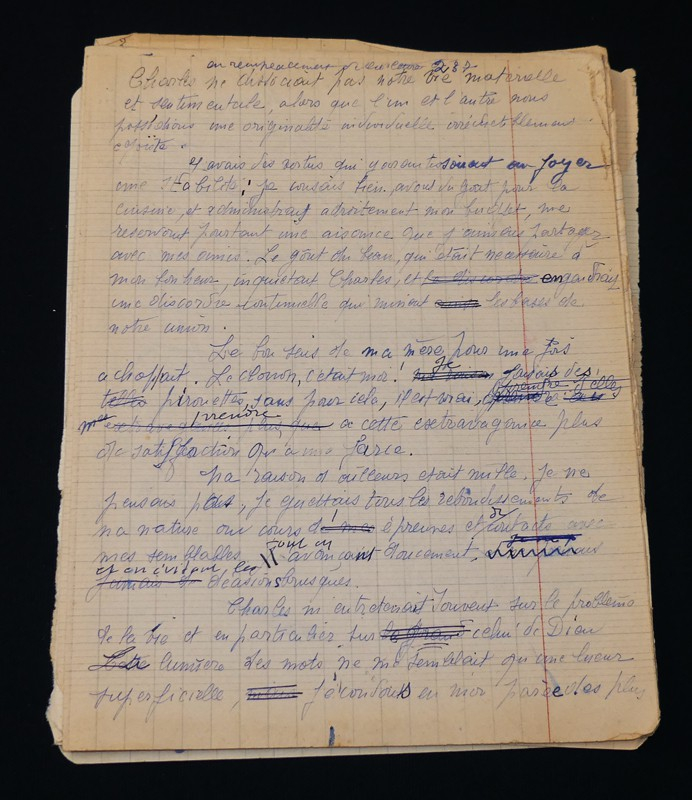 en remplacement 237
Charles ne dissociait pas notre vie matérielle
et sentimentale, alors que l'un et l'autre nous
possédions une originalité individuelle irréductiblement
J'avais des vertus qui garantissaient au foyer
une stabilité; je cousais bien, avais du goût pour la
cuisine, et administrant adroitement mon budget, me
réservant pourtant une aisance que j'aimais partager
avec mes amies. Le goût du beau, qui était nécessaire à
mon bonheur, inquiétait Charles, et en
une discordre continuelle qui minait les bases de
notre union.
Le bon sens de ma mère, pour une fois
achoppait. Le clown, c'était moi! Je faisais des
pirouettes, sans pour cela, il est vrai, prendre
prendre
mes à cette extravagance plus
de satisfaction qu'à une farce.
Ma raison d'ailleurs était nulle. Je ne
pensais pas, je guettais tous les rebondissements de
ma nature au cours d'épreuves et de contacts avec
mes semblables tout en avançant doucement,
occasions brusques.
Charles m'entretenait souvent sur le problème
de la vie et en particulier sur celui de Dieu
lumière des mots, ne me semblait qu'une lueur
superficielle, en moi par des plus